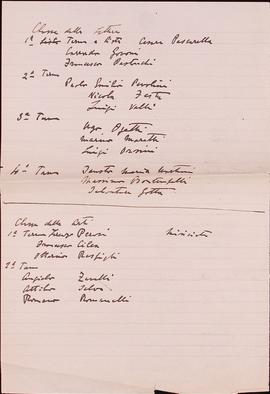 Classe delle Lettere
1ª Lista Terna a Lista Cesare Pascarella
Corrado Govoni
Francesco Pastonchi
2ª Terna
Paolo Emilio Pavolini
Nicola Festa
Luigi Valli
3ª Terna
Ugo Ojetti
Marino Moretti
Luigi Orsini
4ª Terna Fausto Maria Martini
Massimo Bontempelli
Salvator Gotta
Classe delle Arti
1ª Terna Lorenzo Perosi Musicista
Francesco Cilea
Ottorino Respighi
2ª Terna
Angelo Zanelli
Attilio Selva
Romano Romanelli